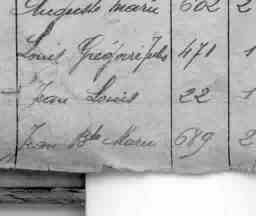 Auguste Marie 602 2
Louis Grégoire Jules 471 1
Jean Louis 22 1
Jean Bte Marie 689 2